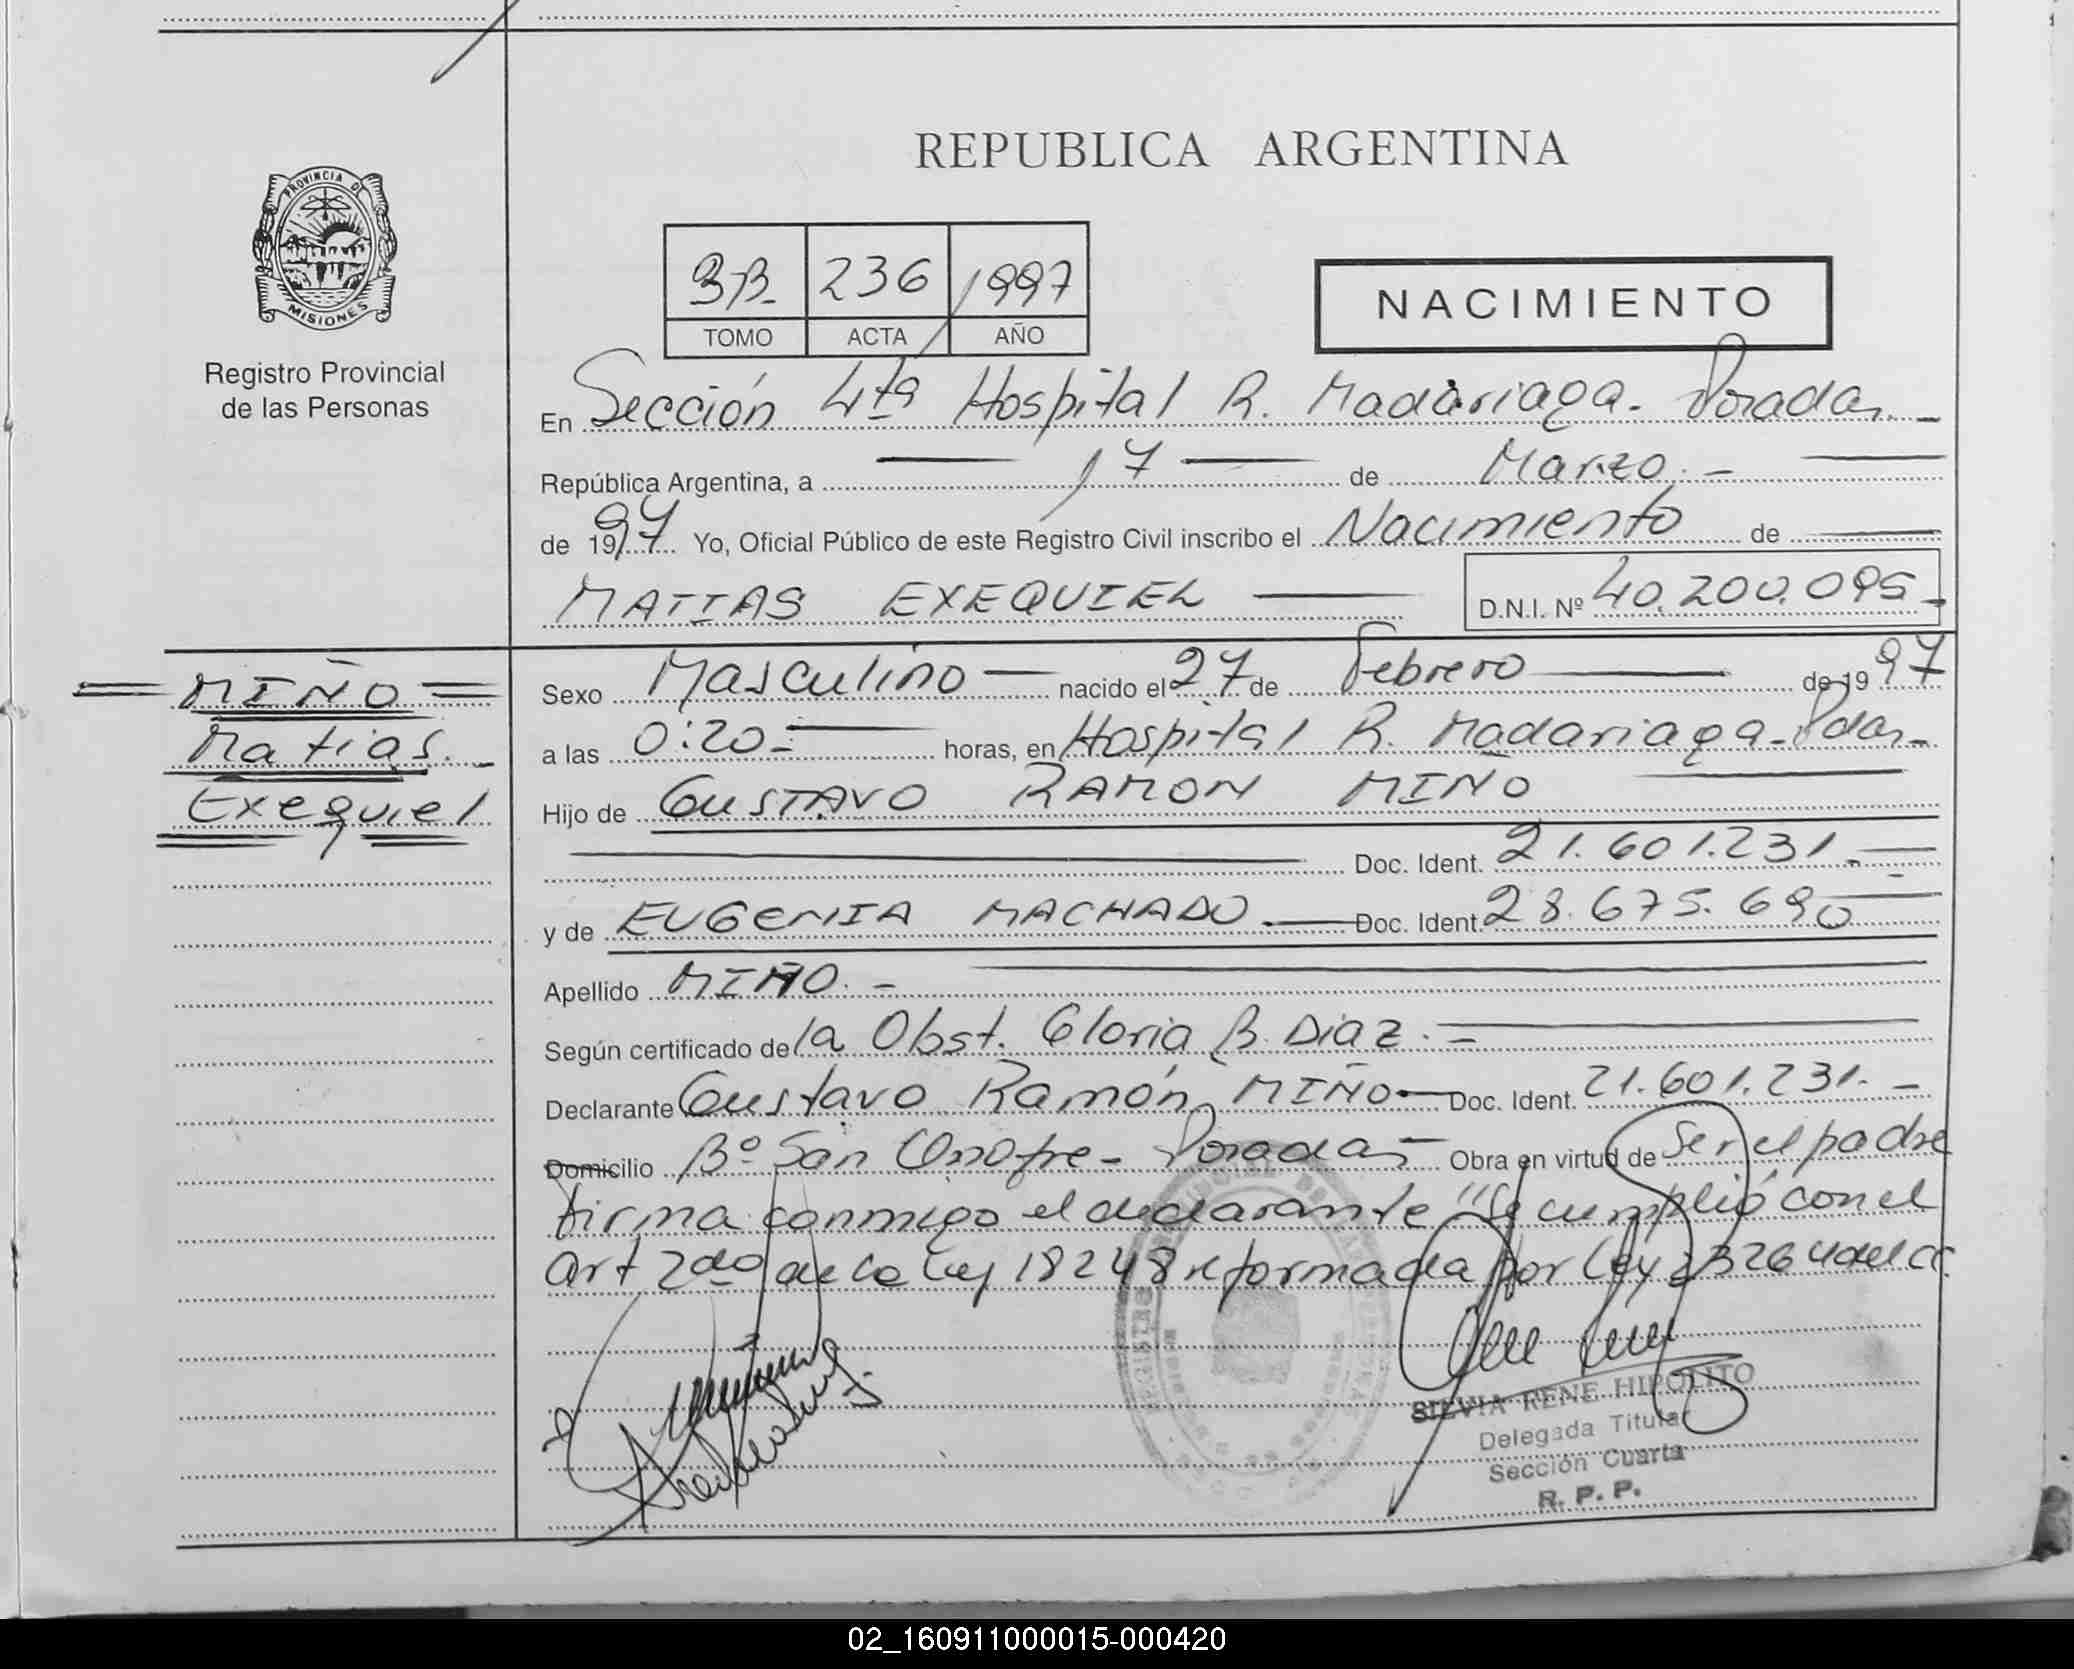 REPUBLICA ARGENTINA
PROVINCIA DE
MISIONES
Registro Provincial
de las Personas
3B. 236 1997
TOMO ACTA AÑO
NACIMIENTO
En Sección 4ta Hospital R. Madariaga. Posadas.
República Argentina, a 17 de Marzo.
de 1997 Yo, Oficial Público de este Registro Civil inscribo el Nacimiento de
MATIAS EXEQUIEL D.N.I. Nº 40.200.095
MIÑO
Matias.
Exequiel
Sexo Masculino nacido el 27 de Febrero de 1997
a las 0:20 horas, en Hospital R. Madariaga - Pdas
Hijo de GUSTAVO RAMON MIÑO
Doc. Ident. 21.601.231
y de EUGENIA MACHADO. Doc. Ident. 28.675.690
Apellido MIÑO.
Según certificado de la Obst. Gloria B. Diaz.
Declarante Gustavo Ramón MIÑO Doc. Ident. 21.601.231.
Domicilio Bº San Onofre - Posadas Obra en virtud de Ser el padre
firma conmigo el declarante "Se cumplió con el
art 2do de la ley 18248 reformada por Ley 23264 del CC.
SILVIA RENE HIPOLITO
Delegada Titular
Sección Cuarta
R. P. P.
02_160911000015-000420